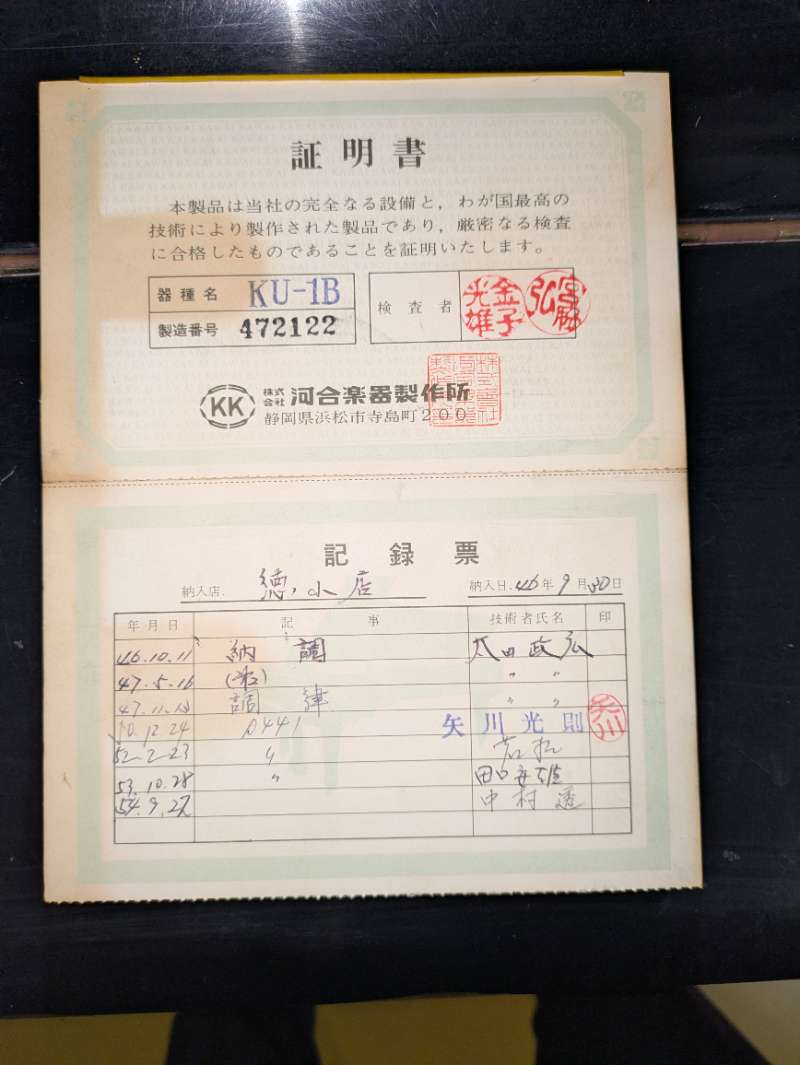 証明書
本製品は当社の完全なる設備と，わが国最高の
技術により製作された製品であり，厳密なる検査
に合格したものであることを証明いたします。
器種名 KU-1B
製造番号 472122
検査者 金子光雄
KK 株式会社 河合楽器製作所
静岡県浜松市寺島町200
記録票
納入店. 徳山店 納入日. 46年9月30日
年月日 記事 技術者氏名 印
46.10.11 納調 太田政弘
47.5.16 〃 〃
47.11.18 調律 〃 〃
12.24 A441 矢川光則 矢川
52.2.23 〃 若松
53.10.28 〃 田口
54.9.27 中村透